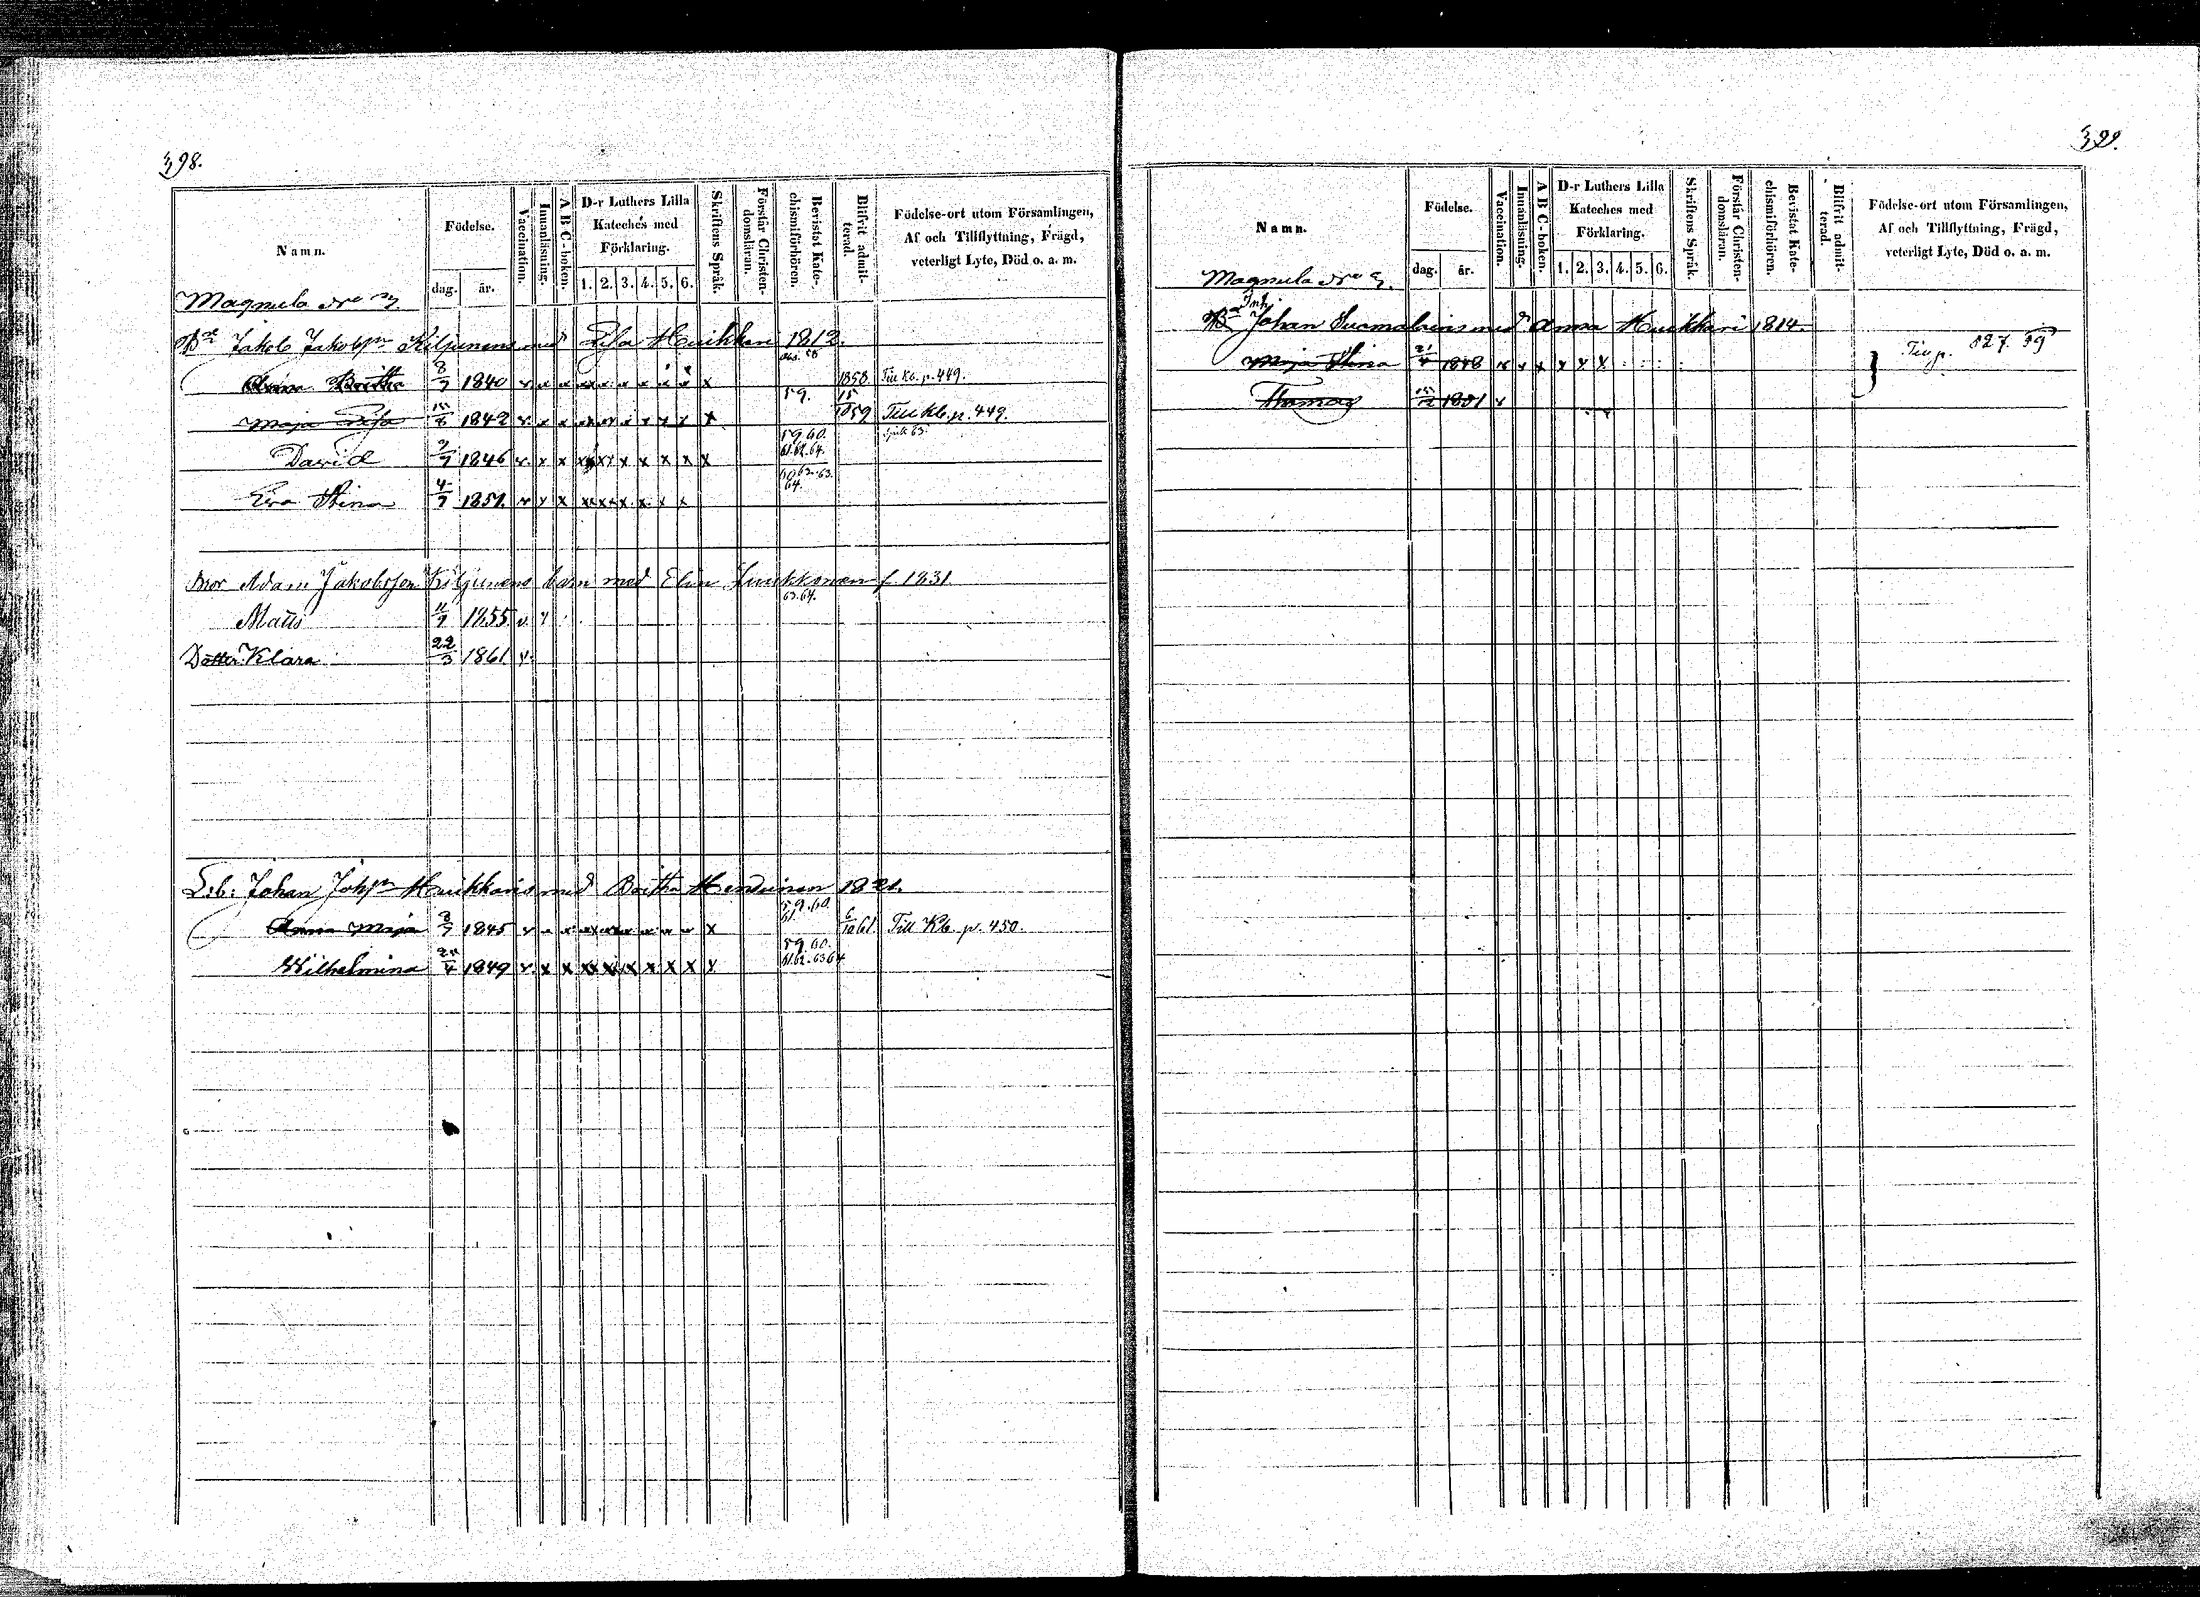 398.
Namn.
Födelse.
dag. år.
Vaccination.
Innanläsning.
A B C-boken.
D-r Luthers Lilla Kateches med Förklaring.
1. 2. 3. 4. 5. 6.
Skriftens Språk.
Förstår Christendomsläran.
Bevistat Katechismiförhören.
Blifvit admitterad.
Födelse-ort utom Församlingen, Af och Tillflyttning, Frägd, veterligt Lyte, Död o. a. m.
Magnula No
Jakob Jakobsn Kiljunens med Lisa Huikkari 1812.
Anna Britha 8/7 1840 v x x x x x x x x x 58 1858 Till Kb. p. 449.
Maja Lisa 1842 v x x x x x x x x x 59. 1859 Till Kb. p. 449.
David 1846 v x x x x x x x x x 59.60. 61.62.64. 63.
Eva Stina 4/7 1851. v x x x x x x x x 62.63. 64.
Bror Adam Jakobsson Kiljunens barn med Elin f. 1831
Matts 11/7 1855 v. 63.64.
Dotter Klara 22/3 1861 v.
L.b. Johan Johsn Huikkaris med Britha 1821.
Anna Maja 1845 v x x x x x x x x x 59.60. 61. 6/10 61 Till Kb. p. 450.
Wilhelmina 1849 v. x x x x x x x x x 59.60. 61.62.63 64
399.
Namn.
Födelse.
dag. år.
Vaccination.
Innanläsning.
A B C-boken.
D-r Luthers Lilla Kateches med Förklaring.
1. 2. 3. 4. 5. 6.
Skriftens Språk.
Förstår Christendomsläran.
Bevistat Katechismiförhören.
Blifvit admitterad.
Födelse-ort utom Församlingen, Af och Tillflyttning, Frägd, veterligt Lyte, Död o. a. m.
Magnula No
Inh.
Johan Suomalains med Anna Huikkari 1814.
Maja Stina 21/4 1848 v x x x x x Till p. 827.
Thomas 1851 v